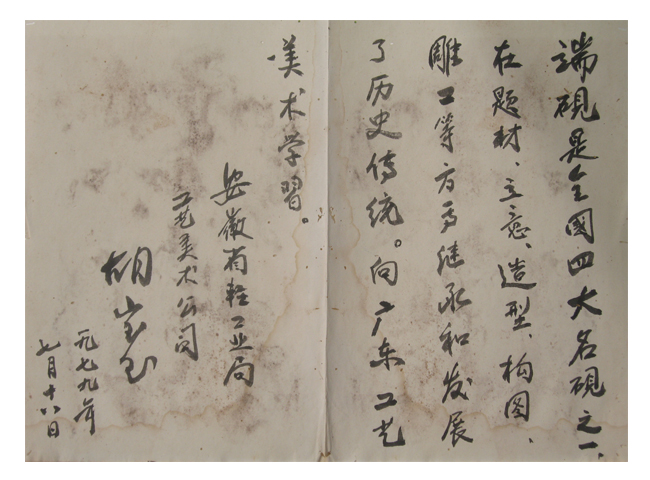 端砚是全國四大名砚之一、
在題材、立意、造型、构图、
雕工等方面继承和发展
了历史传统。向广东工艺
美术学習。
安徽省轻工业局
工艺美术公司
胡
一九七九年
七月十八日